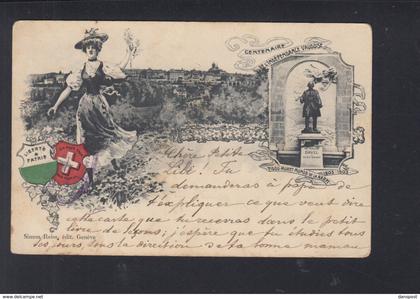 CENTENAIRE
L'INDEPENDANCE VAUDOISE
LIBERTÉ
&
PATRIE
DAVEL
1803 1903
Chère Petite
Lili. Tu
demanderas à papa de
t'expliquer ce que veut dire
cette carte que tu recevras dans le petit
livre de leçons; j'espère que tu étudies tous
les jours sous la direction de ta bonne maman
Simon Reiss, édit. Genève
© danspost
delcampe.net